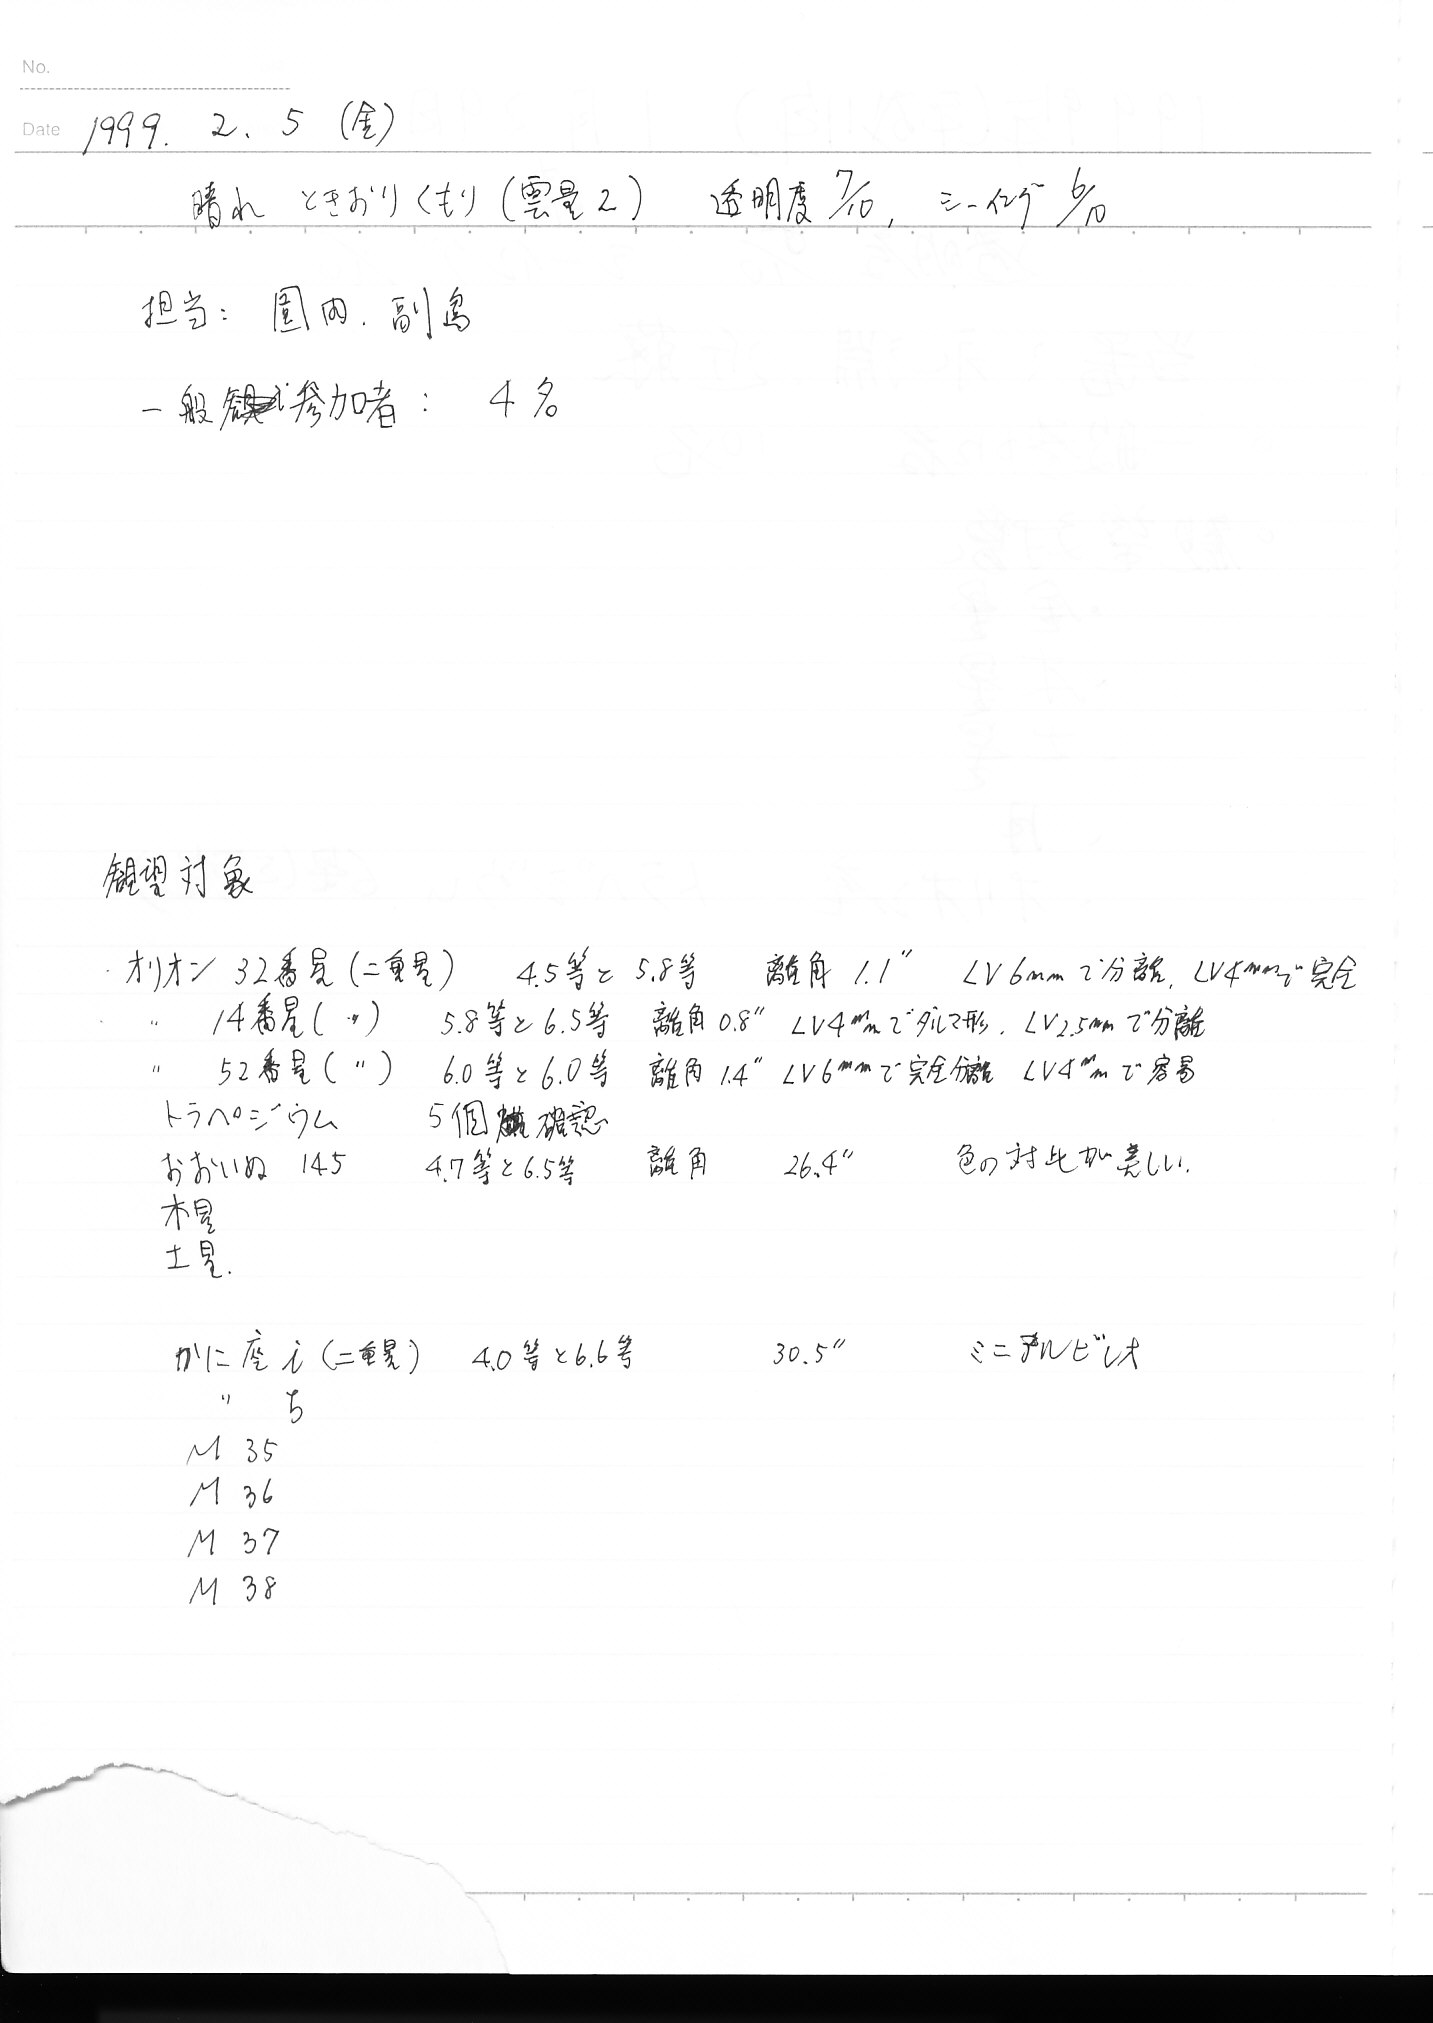 No.
Date 1999. 2. 5 (金)
晴れ ときおりくもり (雲量2) 透明度 7/10, シーイング 6/10
担当: 園内. 副島
一般 参加者: 4名
観望対象
・オリオン 32番星 (二重星) 4.5等と 5.8等 離角 1.1" LV6mmで分離, LV4mmで完全
〃 14番星 (〃) 5.8等と6.5等 離角0.8" LV4mmでダルマ形. LV2.5mmで分離
〃 52番星 (〃) 6.0等と6.0等 離角1.4" LV6mmで完全分離 LV4mmで容易
トラペジウム 5個 確認
おおいぬ 145 4.7等と6.5等 離角 26.4" 色の対比が美しい.
木星
土星.
かに座 i (二重星) 4.0等と6.6等 30.5" ミニアルビレオ
〃 ち
M 35
M 36
M 37
M 38